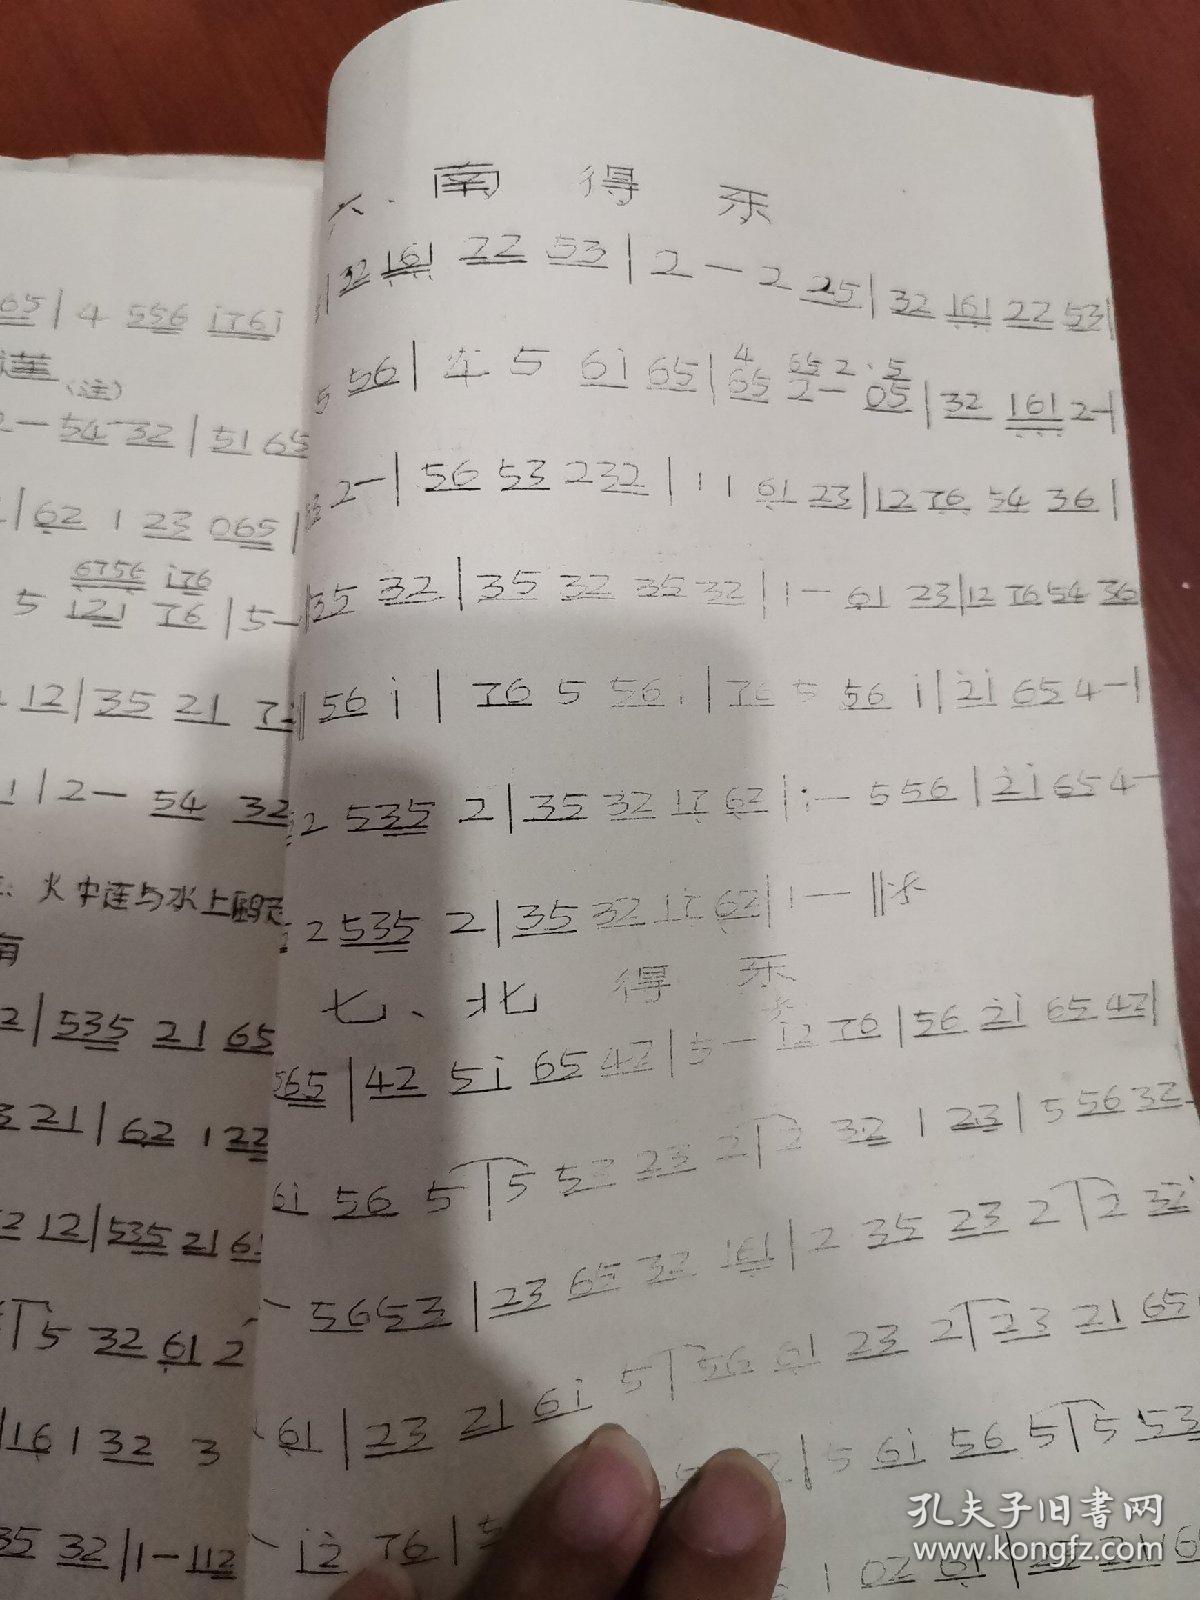 05 | 4 556 i76i
(注)
2 — 54 32 | 51 65
| 62 1 23 065 |
6756 i76
5 121 76 | 5 —
12 | 35 21 7
1 | 2 — 54 32
火中莲与水上
2 | 535 21 65
3 21 | 62 1 22
2 12 | 535 21 61
| 5 32 61 2
| 16 1 32 3
35 32 | 1 — 112
六、南 得 乐
| 32 161 22 53 | 2 — 2 25 | 32 161 22 53 |
4 65 2 · 5
5 56 | 4 5 6i 65 | 65 2 — 05 | 32 161 2 — |
2 — | 56 53 232 | 1 1 61 23 | 12 76 54 36 |
| 35 32 | 35 32 35 32 | 1 — 61 23 | 12 76 54 36
56 i | 76 5 56 i | 76 5 56 i | 2i 65 4 — |
2 535 2 | 35 32 17 62 | 1 — 5 56 | 2i 65 4 —
2 535 2 | 35 32 17 62 | 1 — — ‖
七、北 得 乐
565 | 42 5i 65 42 | 5 — i2 76 | 56 2i 65 42 |
6i 56 5 | 5 53 23 2 | 2 32 1 23 | 5 56 32
— 56 53 | 23 65 32 161 | 2 35 23 2 | 2 32
61 | 23 21 6i 5 | 56 61 23 2 | 23 21 65
— i2 76 | 5
| 5 6i 56 5 | 5 53
1 02 61 |
孔夫子旧书网
www.kongfz.com